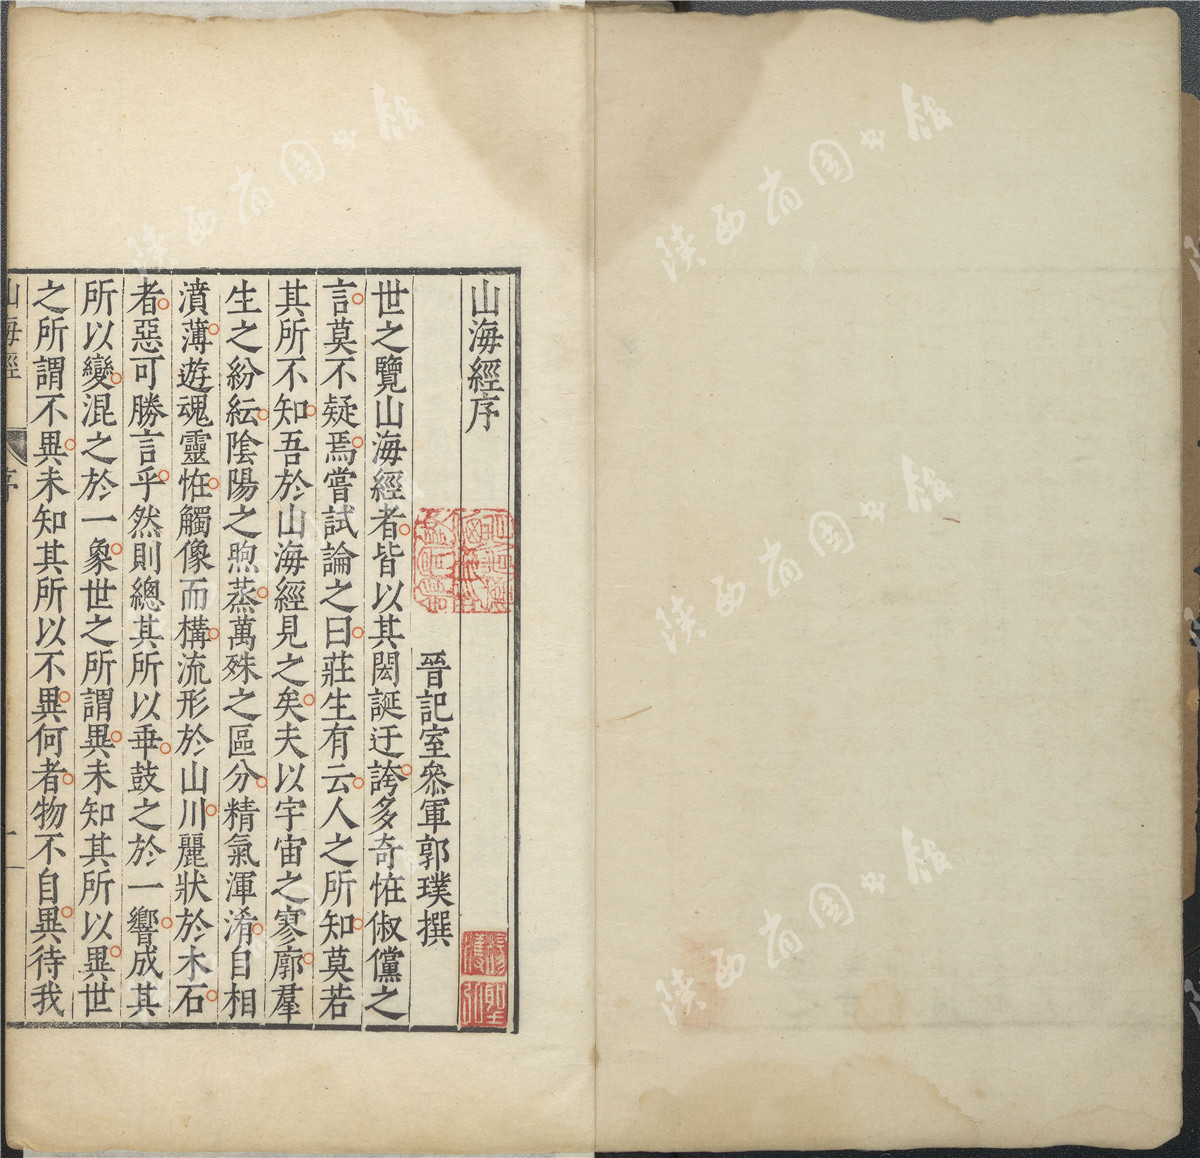 山海經序
晉記室叅軍郭璞撰
世之覽山海經者皆以其閎誕迂誇多奇恠俶儻之
言莫不疑焉嘗試論之曰莊生有云人之所知莫若
其所不知吾於山海經見之矣夫以宇宙之寥廓羣
生之紛紜陰陽之煦蒸萬殊之區分精氣渾淆自相
濆薄遊魂靈恠觸像而構流形於山川麗狀於木石
者惡可勝言乎然則總其所以乖鼓之於一響成其
所以變混之於一象世之所謂異未知其所以異世
之所謂不異未知其所以不異何者物不自異待我
山海經
序
一
陕西省图书馆